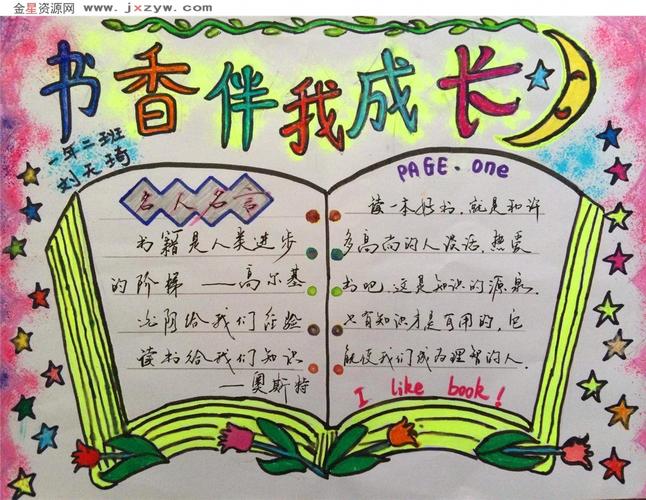 金星资源网
www.jxzyw.com
书香伴我成长
一年二班
刘天琦
PAGE. one
名人名言
书籍是人类进步
的阶梯——高尔基
沧阴给我们经验
读书给我们知识
——奥斯特
读一本好书,就是和许
多高尚的人谈话,热爱
书吧,这是知识的源泉.
只有知识才是有用的,它
能使我们成为理智的人.
I like book!